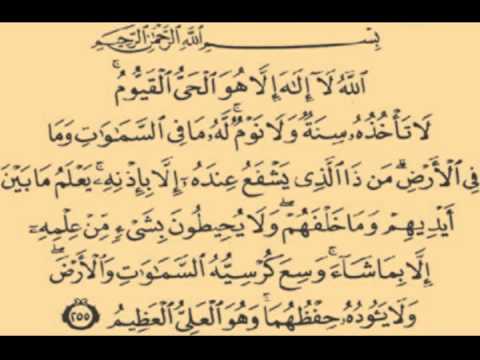 بِسْمِ اللَّهِ الرَّحْمَٰنِ الرَّحِيمِ
اللَّهُ لَا إِلَٰهَ إِلَّا هُوَ الْحَيُّ الْقَيُّومُ ۚ
لَا تَأْخُذُهُ سِنَةٌ وَلَا نَوْمٌ ۚ لَّهُ مَا فِي السَّمَاوَاتِ وَمَا
فِي الْأَرْضِ ۗ مَن ذَا الَّذِي يَشْفَعُ عِندَهُ إِلَّا بِإِذْنِهِ ۚ يَعْلَمُ مَا بَيْنَ
أَيْدِيهِمْ وَمَا خَلْفَهُمْ ۖ وَلَا يُحِيطُونَ بِشَيْءٍ مِّنْ عِلْمِهِ
إِلَّا بِمَا شَاءَ ۚ وَسِعَ كُرْسِيُّهُ السَّمَاوَاتِ وَالْأَرْضَ ۖ
وَلَا يَئُودُهُ حِفْظُهُمَا ۚ وَهُوَ الْعَلِيُّ الْعَظِيمُ ٢٥٥